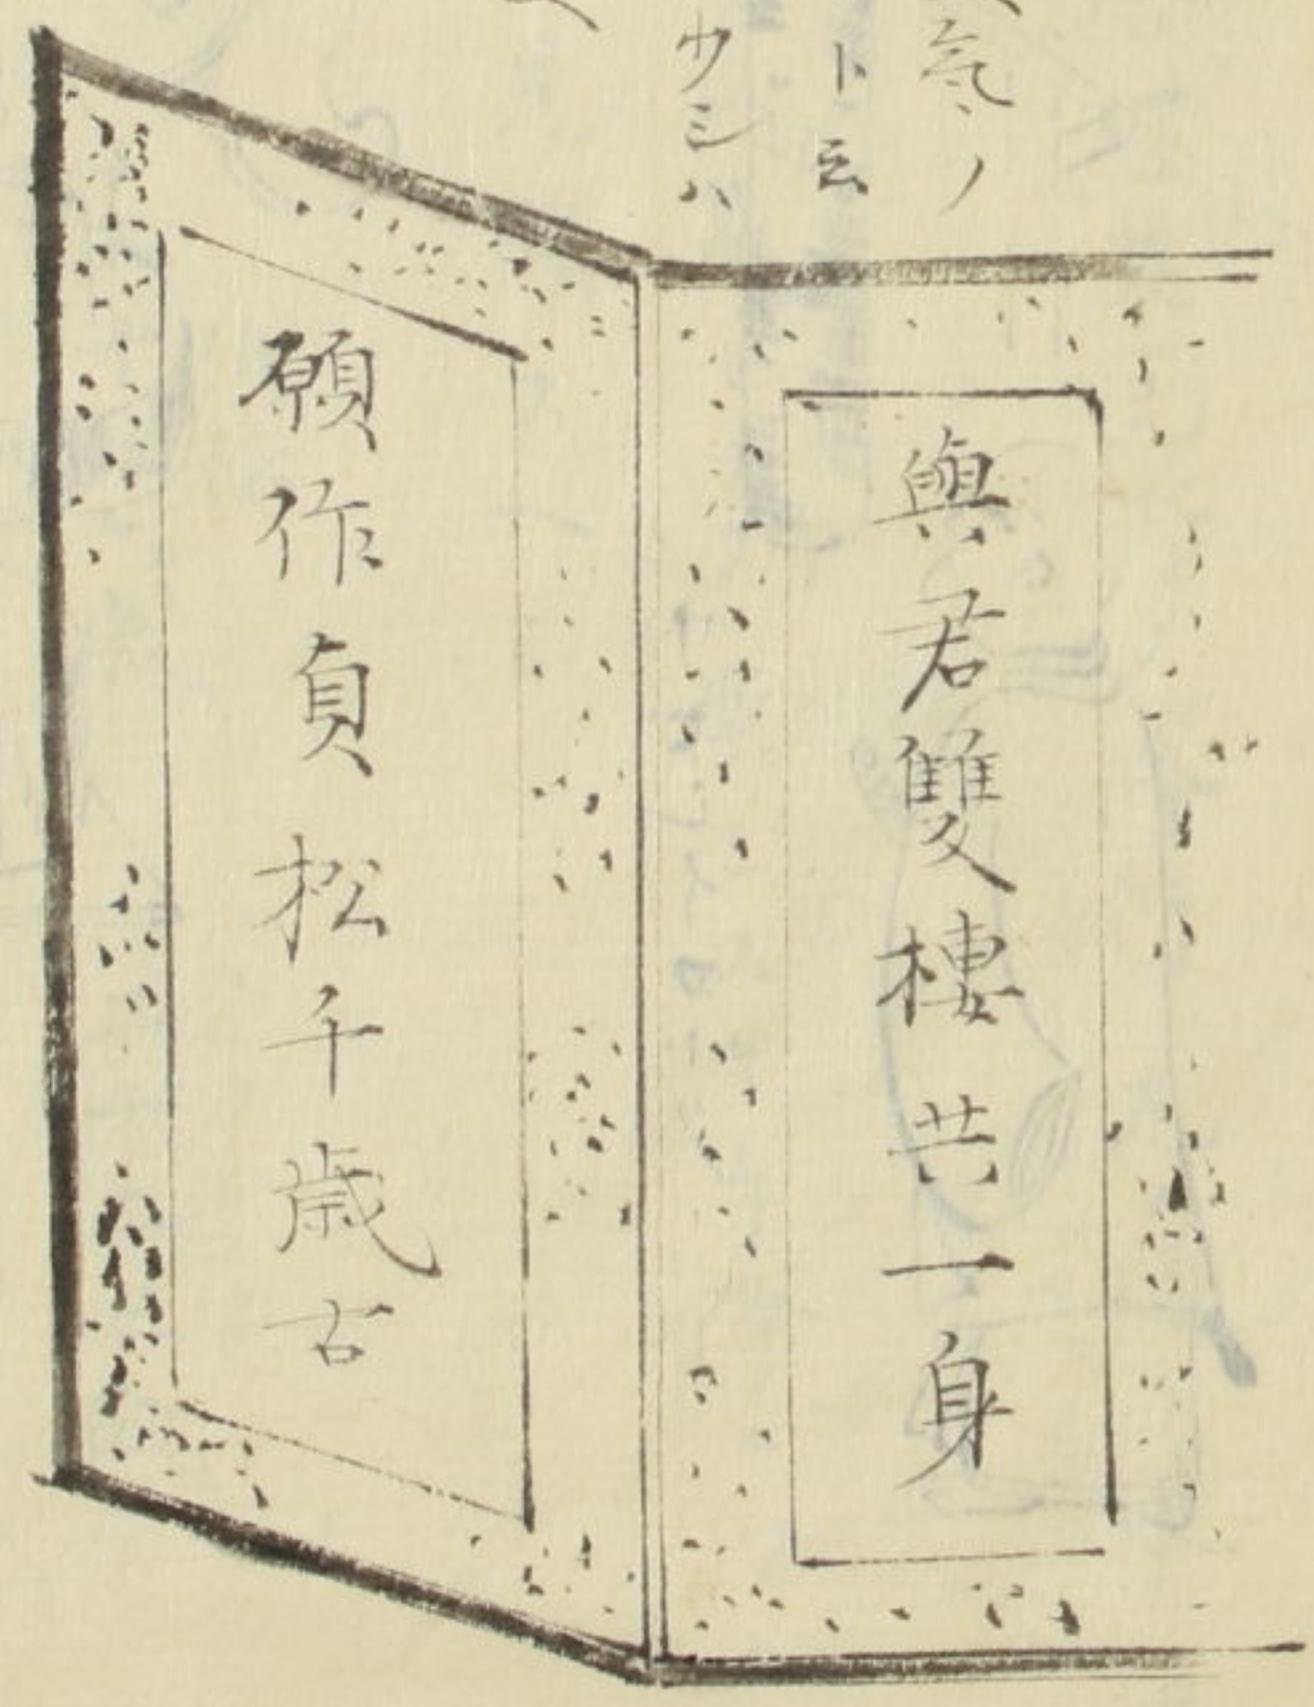 氣ノ
ト云
少シハ
與君雙棲共一身
願作貞松千歳古